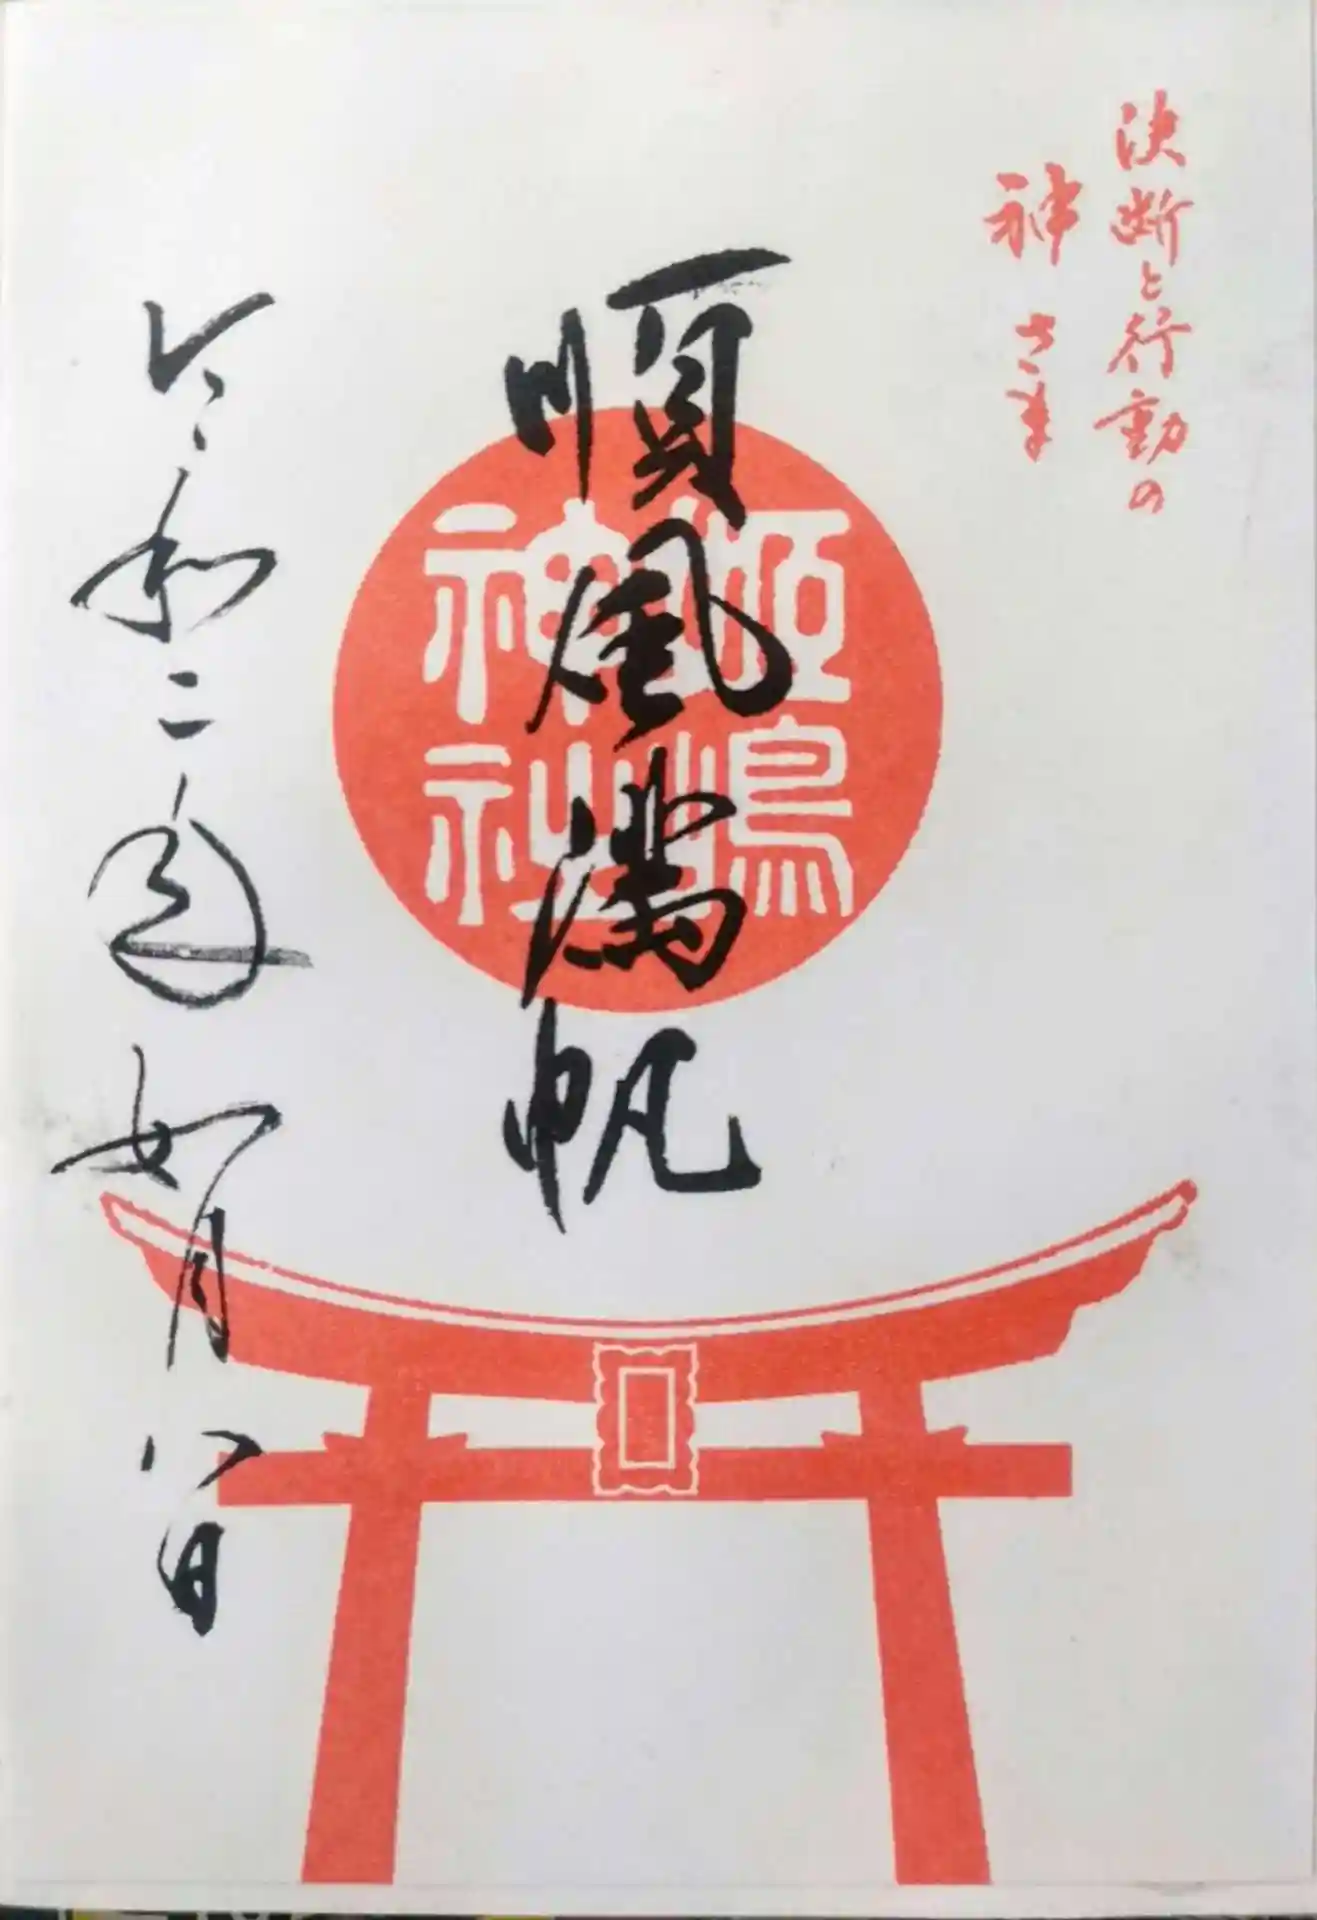 決断と行動の
神さま
姫嶋
神社
順風満帆
令和二年如月八日